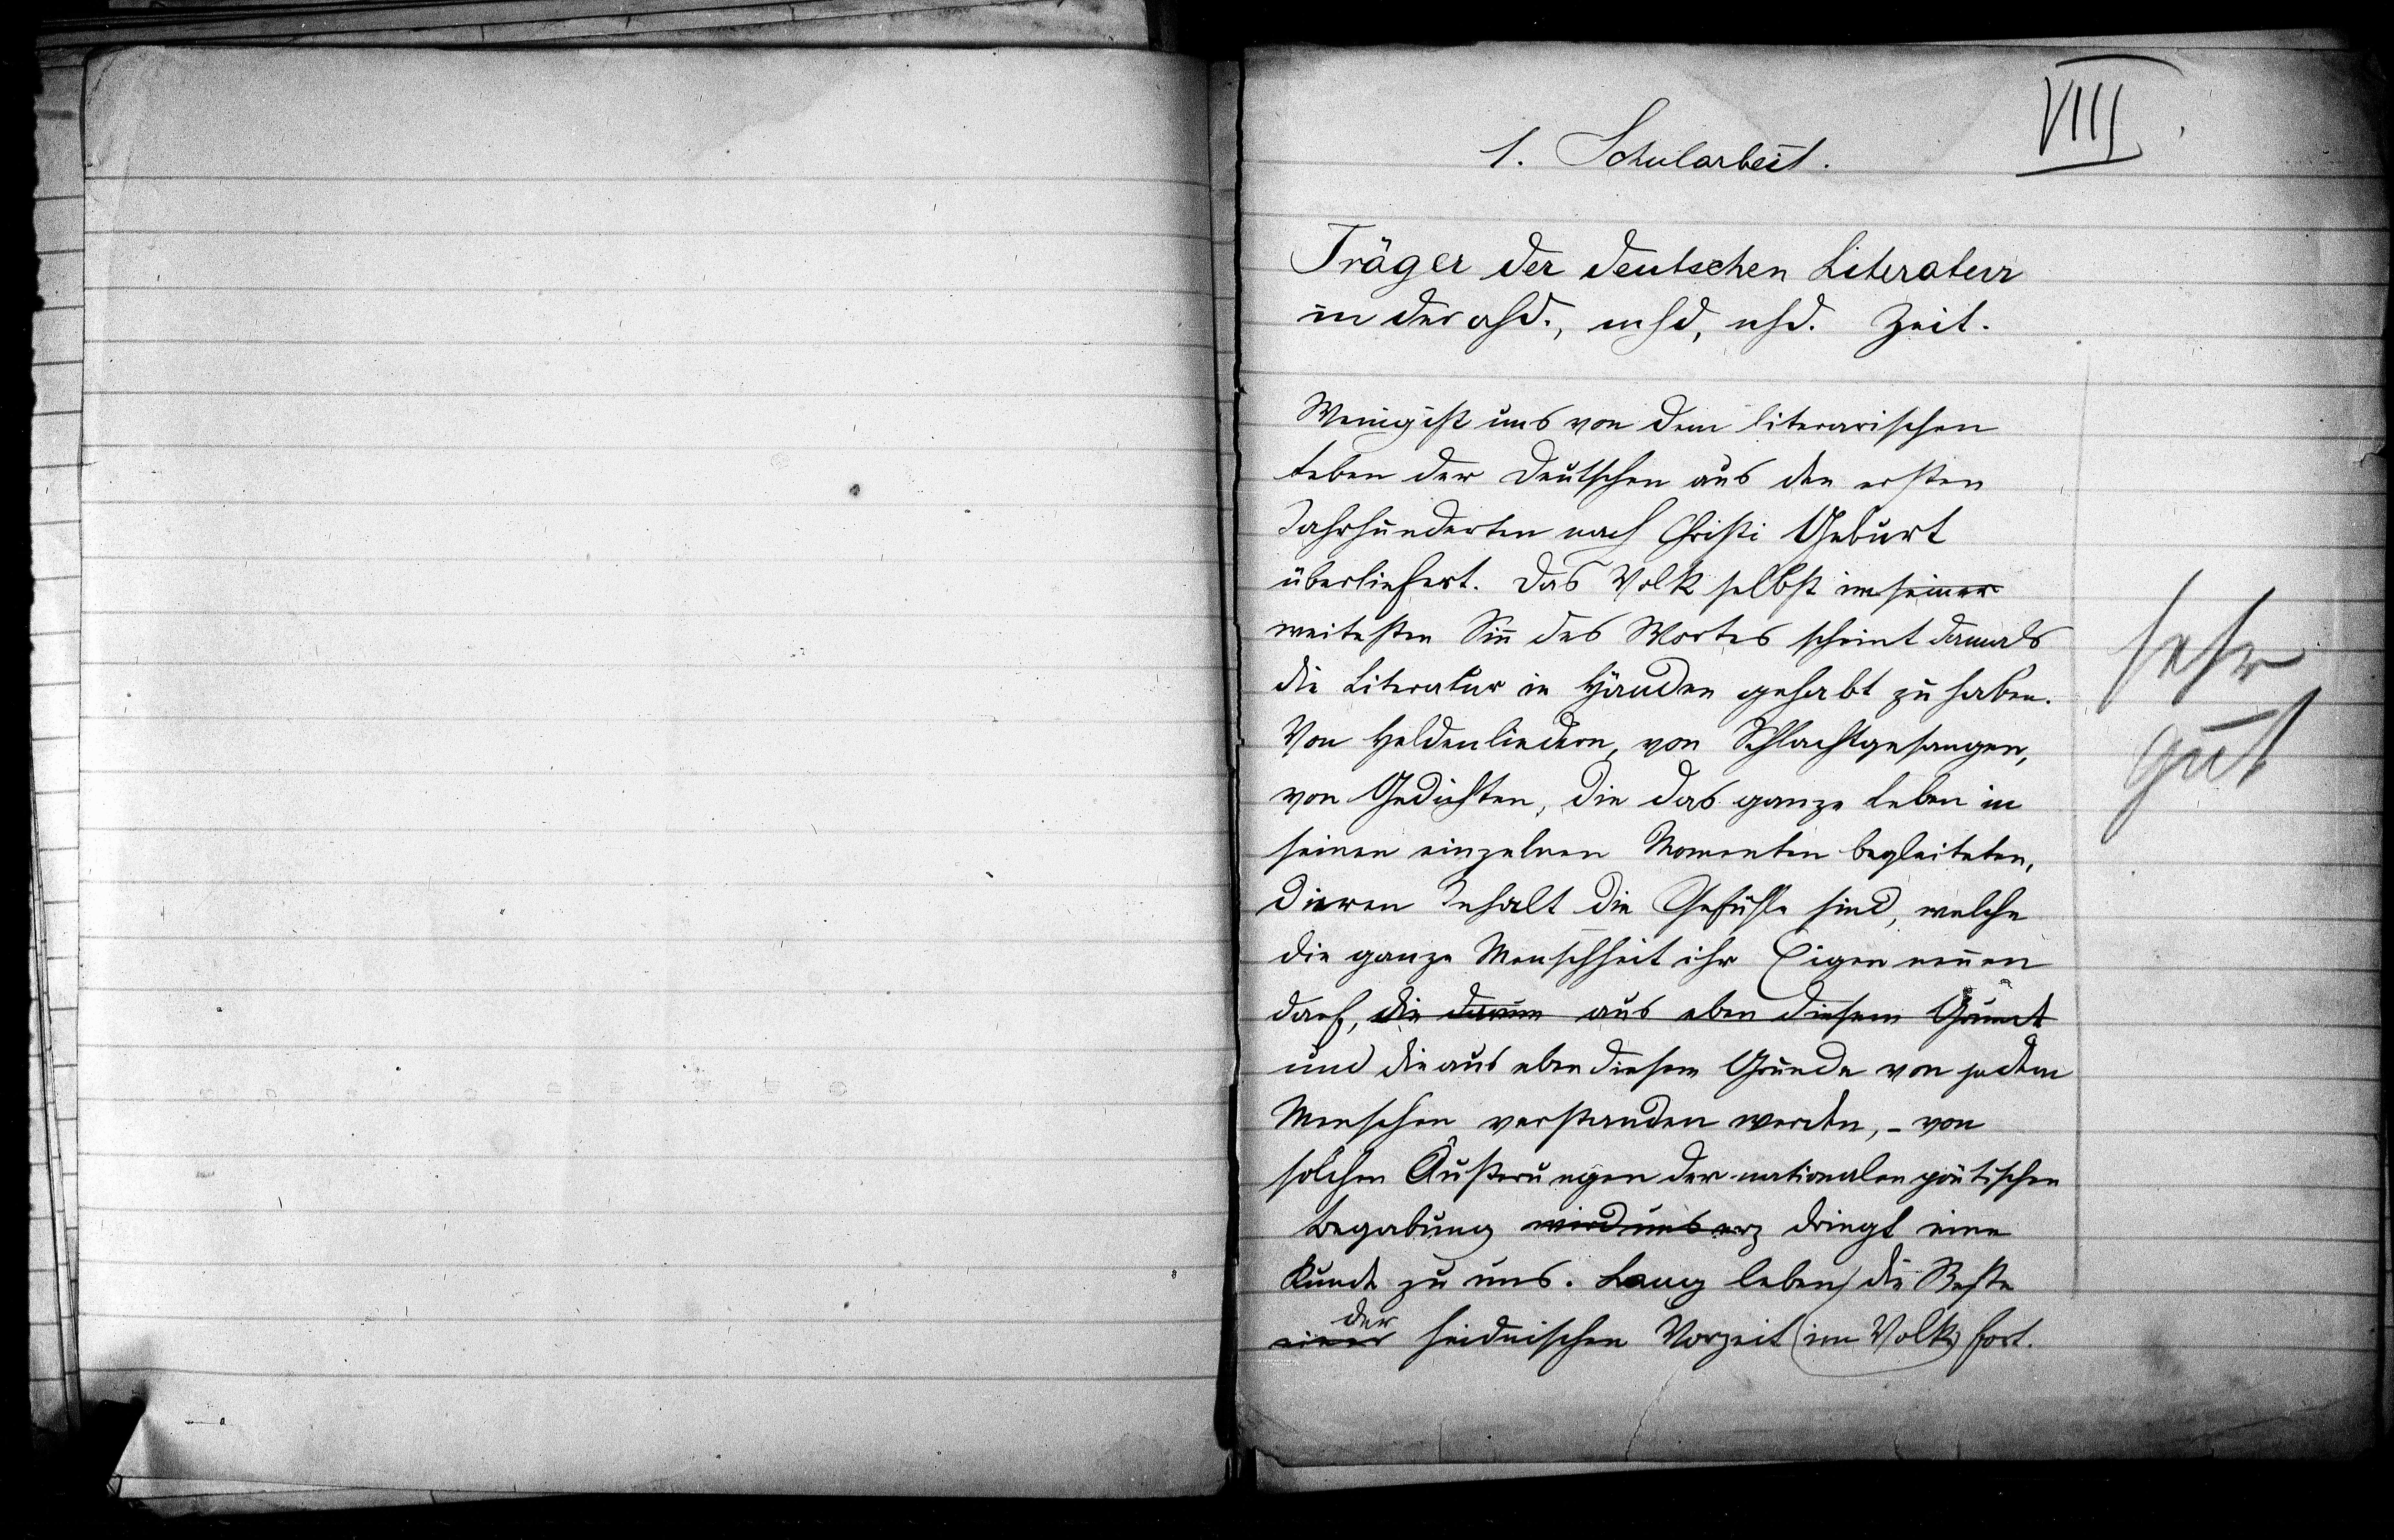 VIII
1. Schularbeit.
Träger der deutschen Literatur
in der ahd., mhd, nhd. Zeit.
Wenig ist uns von dem literarischen
Leben der Deutschen aus den ersten
Jahrhunderten nach Christi Geburt
überliefert. Das Volk selbst im seiner
weitesten Sinn des Wortes scheint damals
die Literatur in Händen gehabt zu haben.
Von Heldenliedern, von Schlachtgesangen,
von Gedichten, die das ganze Leben in
seinen einzelnen Momenten begleiteten,
deren Inhalt die Gefühle sind, welche
die ganze Menschheit ihr Eigen nennen
darf, die darum aus eben diesem Grunde
und die aus eben diesem Grunde von jedem
Menschen verstanden werden, - von
solchen Äußerungen der nationalen poetischen
Begabung wird uns erz dringt eine
Kunde zu uns. Lang leben die Reste
der
einer heidnischen Vorzeit (im Volke) fort.
sehr
gut